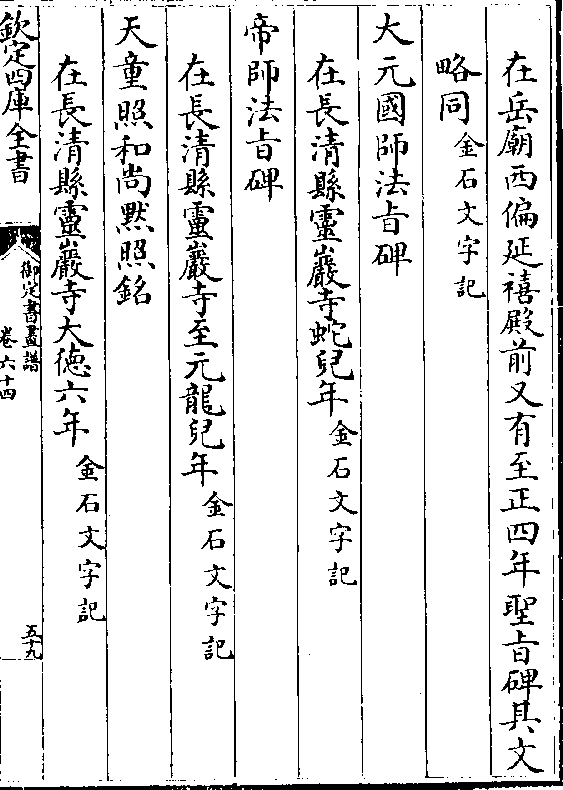 在岳廟西偏延禧殿前又有至正四年聖㫖碑其文
略同金石文字記
大元國師法㫖碑
在長清縣靈巖寺蛇兒年金石文字記
帝師法㫖碑
在長清縣靈巖寺至元龍兒年金石文字記
天童照和尚默照銘
在長清縣靈巖寺大徳六年金石文字記
欽定四庫全書
御定書畫譜
卷六十四
五十九